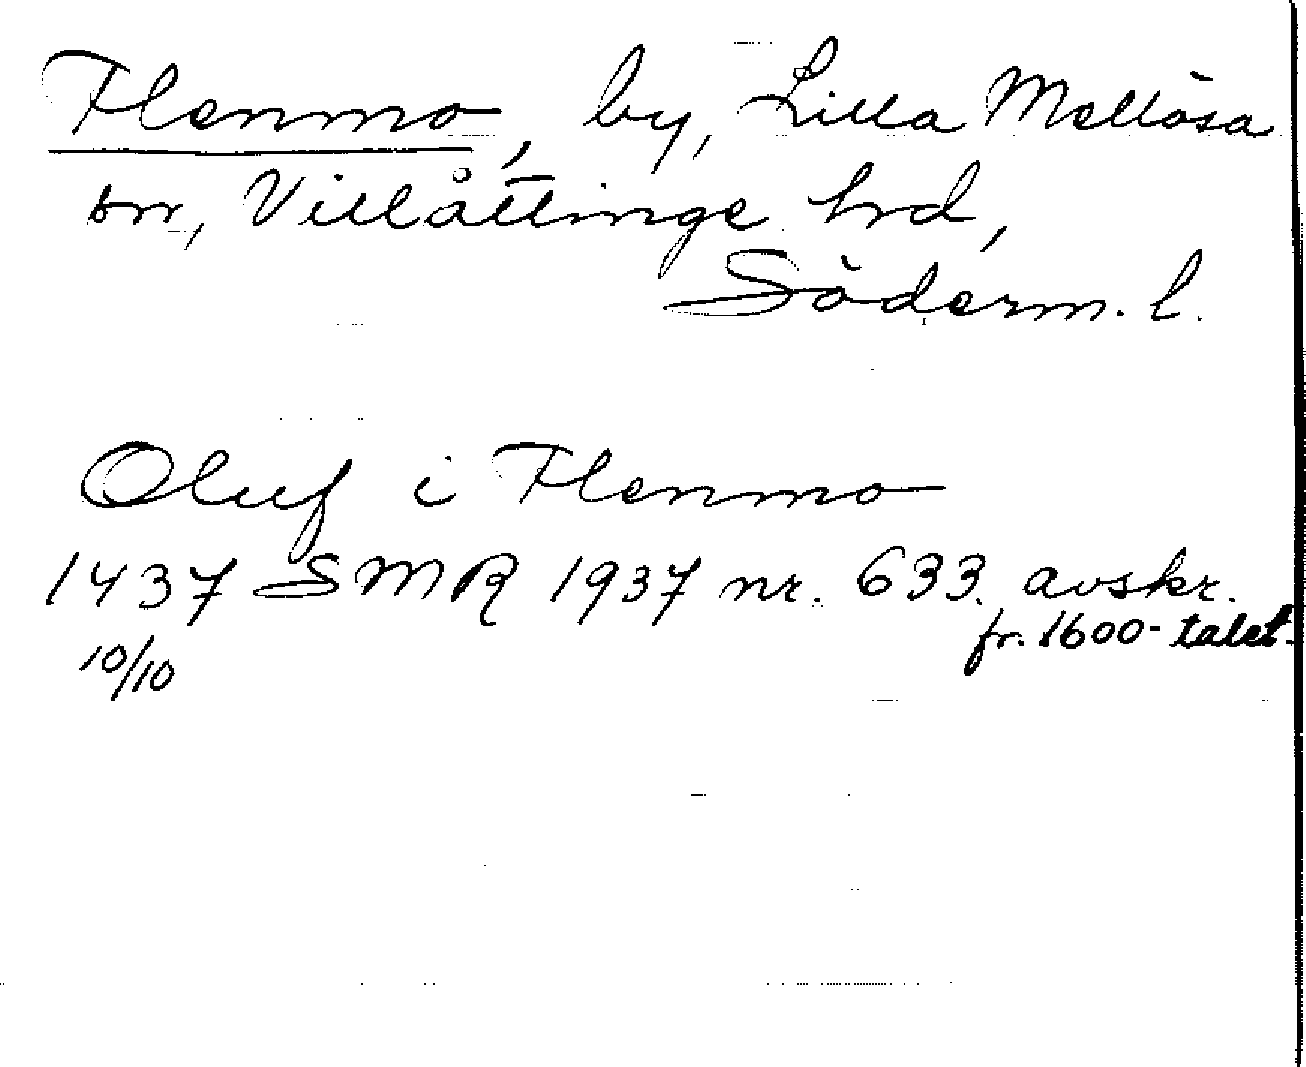 Flenmo, by, Lilla Mellösa
sn, Villåttinge hrd,
Söderm. l.
Oluf i Flenmo
1437 SMR 1937 nr. 633. avskr.
fr. 1600-talet.
10/10